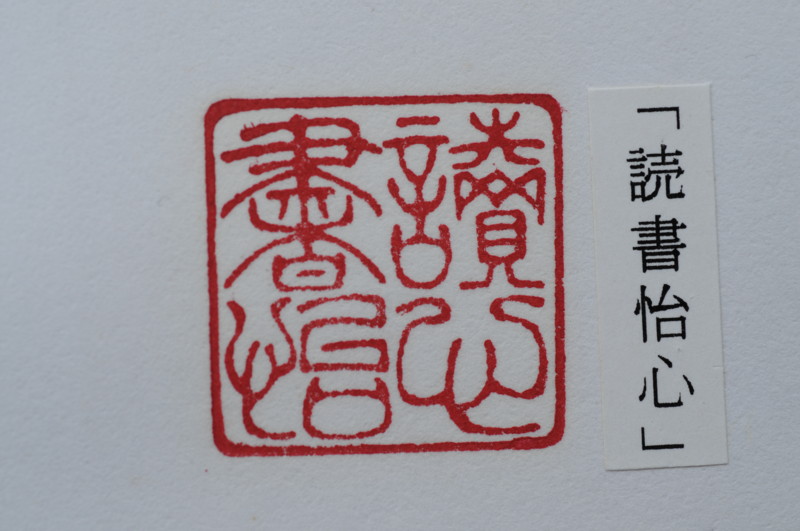 「読書怡心」
讀書
怡心